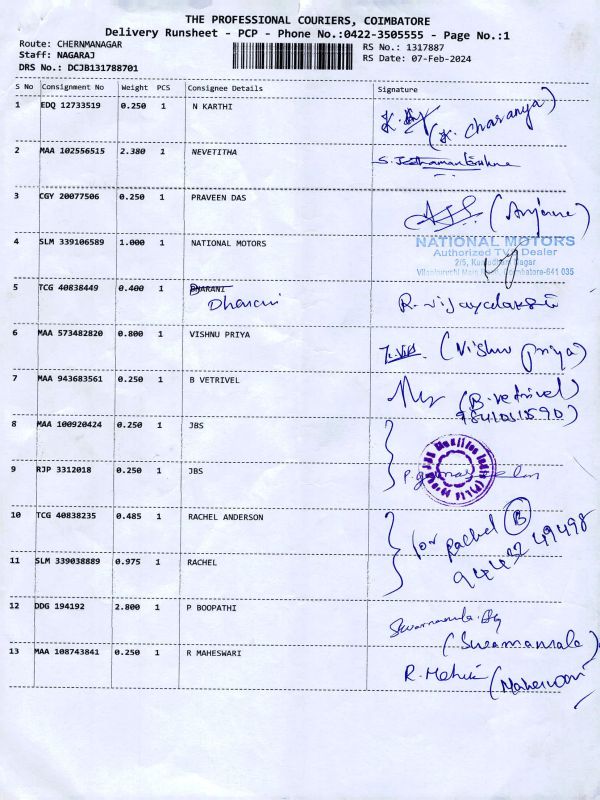 THE PROFESSIONAL COURIERS, COIMBATORE
Delivery Runsheet - PCP - Phone No.:0422-3505555 - Page No.:1
Route: CHERNMANAGAR
RS No.: 1317887
Staff: NAGARAJ
RS Date: 07-Feb-2024
DRS No.: DCJB131788701
S No Consignment No Weight PCS Consignee Details Signature
1 EDQ 12733519 0.250 1 N KARTHI
(K. Charanya)
2 MAA 102556515 2.380 1 NEVETITHA
3 CGY 20077506 0.250 1 PRAVEEN DAS
4 SLM 339106589 1.000 1 NATIONAL MOTORS
NATIONAL MOTORS
Authorized TVS Dealer
5 TCG 40838449 0.400 1 DHARANI
Dharani
6 MAA 573482820 0.800 1 VISHNU PRIYA
(Vishnu Priya)
7 MAA 943683561 0.250 1 B VETRIVEL
(B.vetrivel)
8 MAA 100920424 0.250 1 JBS
9 RJP 3312018 0.250 1 JBS
10 TCG 40838235 0.485 1 RACHEL ANDERSON
for rachel B
11 SLM 339038889 0.975 1 RACHEL
12 DDG 194192 2.800 1 P BOOPATHI
13 MAA 108743841 0.250 1 R MAHESWARI